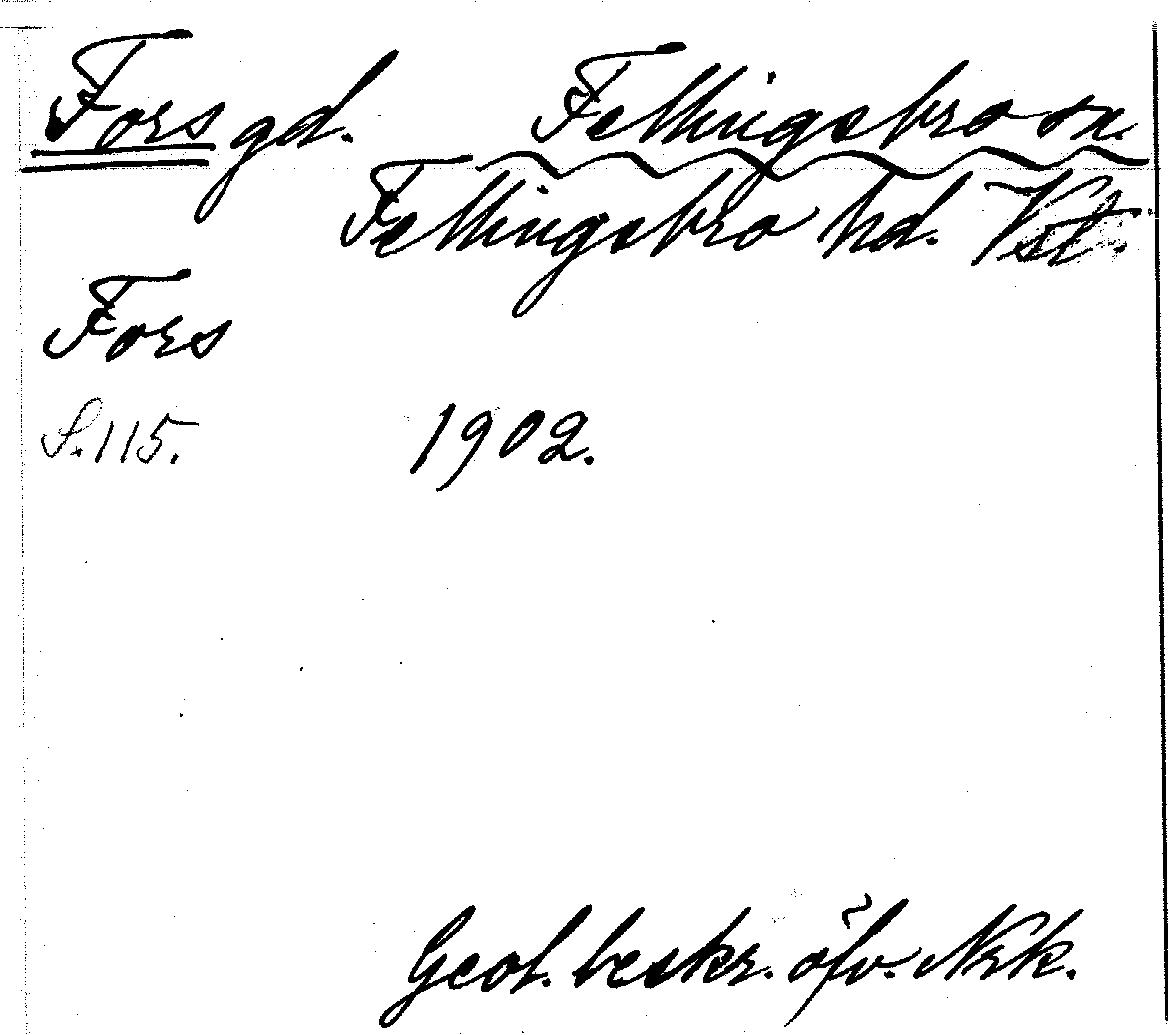 Fors gd. Fellingsbro sn.
Fellingsbro hd. Vstl.
Fors
S. 115. 1902.
Geol. beskr. öfv. Nrk.